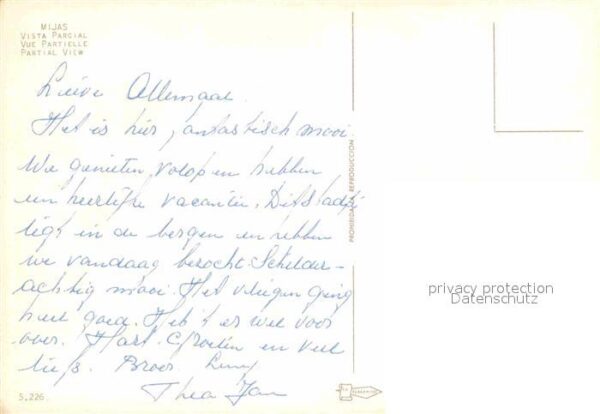 MIJAS
VISTA PARCIAL
VUE PARTIELLE
PARTIAL VIEW
Lieve Allemaal
Het is hier fantastisch mooi
We genieten volop en hebben
een heerlijke vacantie. Dit stadje
ligt in de bergen en hebben
we vandaag bezocht. Schilder-
achtig mooi. Het vliegen ging
heel goed. Heb 't er wel voor
over. Hart. Groeten en veel
liefs. Broer. Leny
Thea Jan
PROHIBIDA REPRODUCCION
privacy protection
Datenschutz
5.226